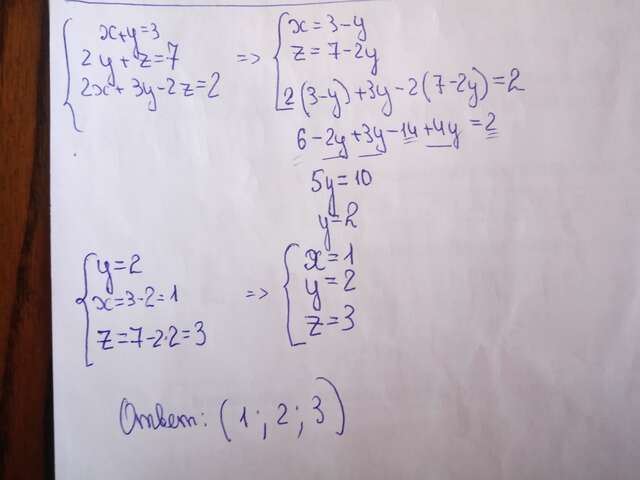 x+y=3
2y+z=7
2x+3y-2z=2
=> x=3-y
z=7-2y
2(3-y)+3y-2(7-2y)=2
6-2y+3y-14+4y=2
5y=10
y=2
y=2
x=3-2=1
z=7-2·2=3
=> x=1
y=2
z=3
Ответ: (1; 2; 3)